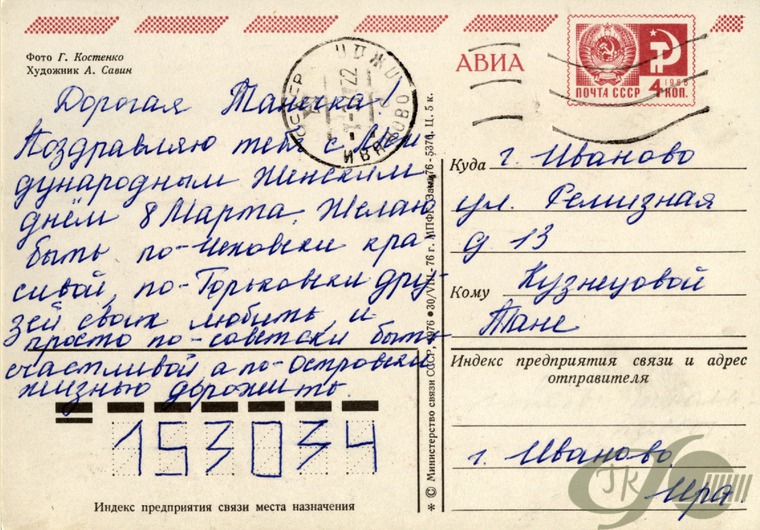 Фото Г. Костенко
Художник А. Савин
АВИА
ПОЧТА СССР
4 КОП.
Дорогая Танечка!
Поздравляю тебя с Меж
дународным Женским
днём 8 Марта. Желаю
быть по-чеховски кра
сивой, по-Горьковски дру-
зей своих любить, и
просто по-советски быть
счастливой а по-Островски
жизнью дорожить.
153034
Индекс предприятия связи места назначения
© Министерство связи СССР, 1976
30/VIII-76 г. МПФГ. Зак. 76-5376. Ц. 5 к.
ИВАНОВО
Куда г. Иваново
ул. Ремизная
д 13
Кому Кузнецовой
Тане
Индекс предприятия связи и адрес
отправителя
г. Иваново
Ира